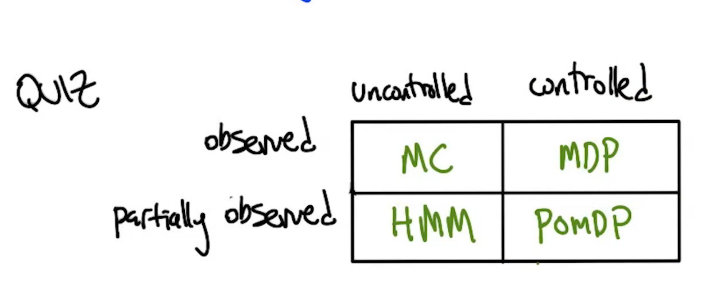 QUIZ
uncontrolled controlled
observed MC MDP
partially observed HMM POMDP